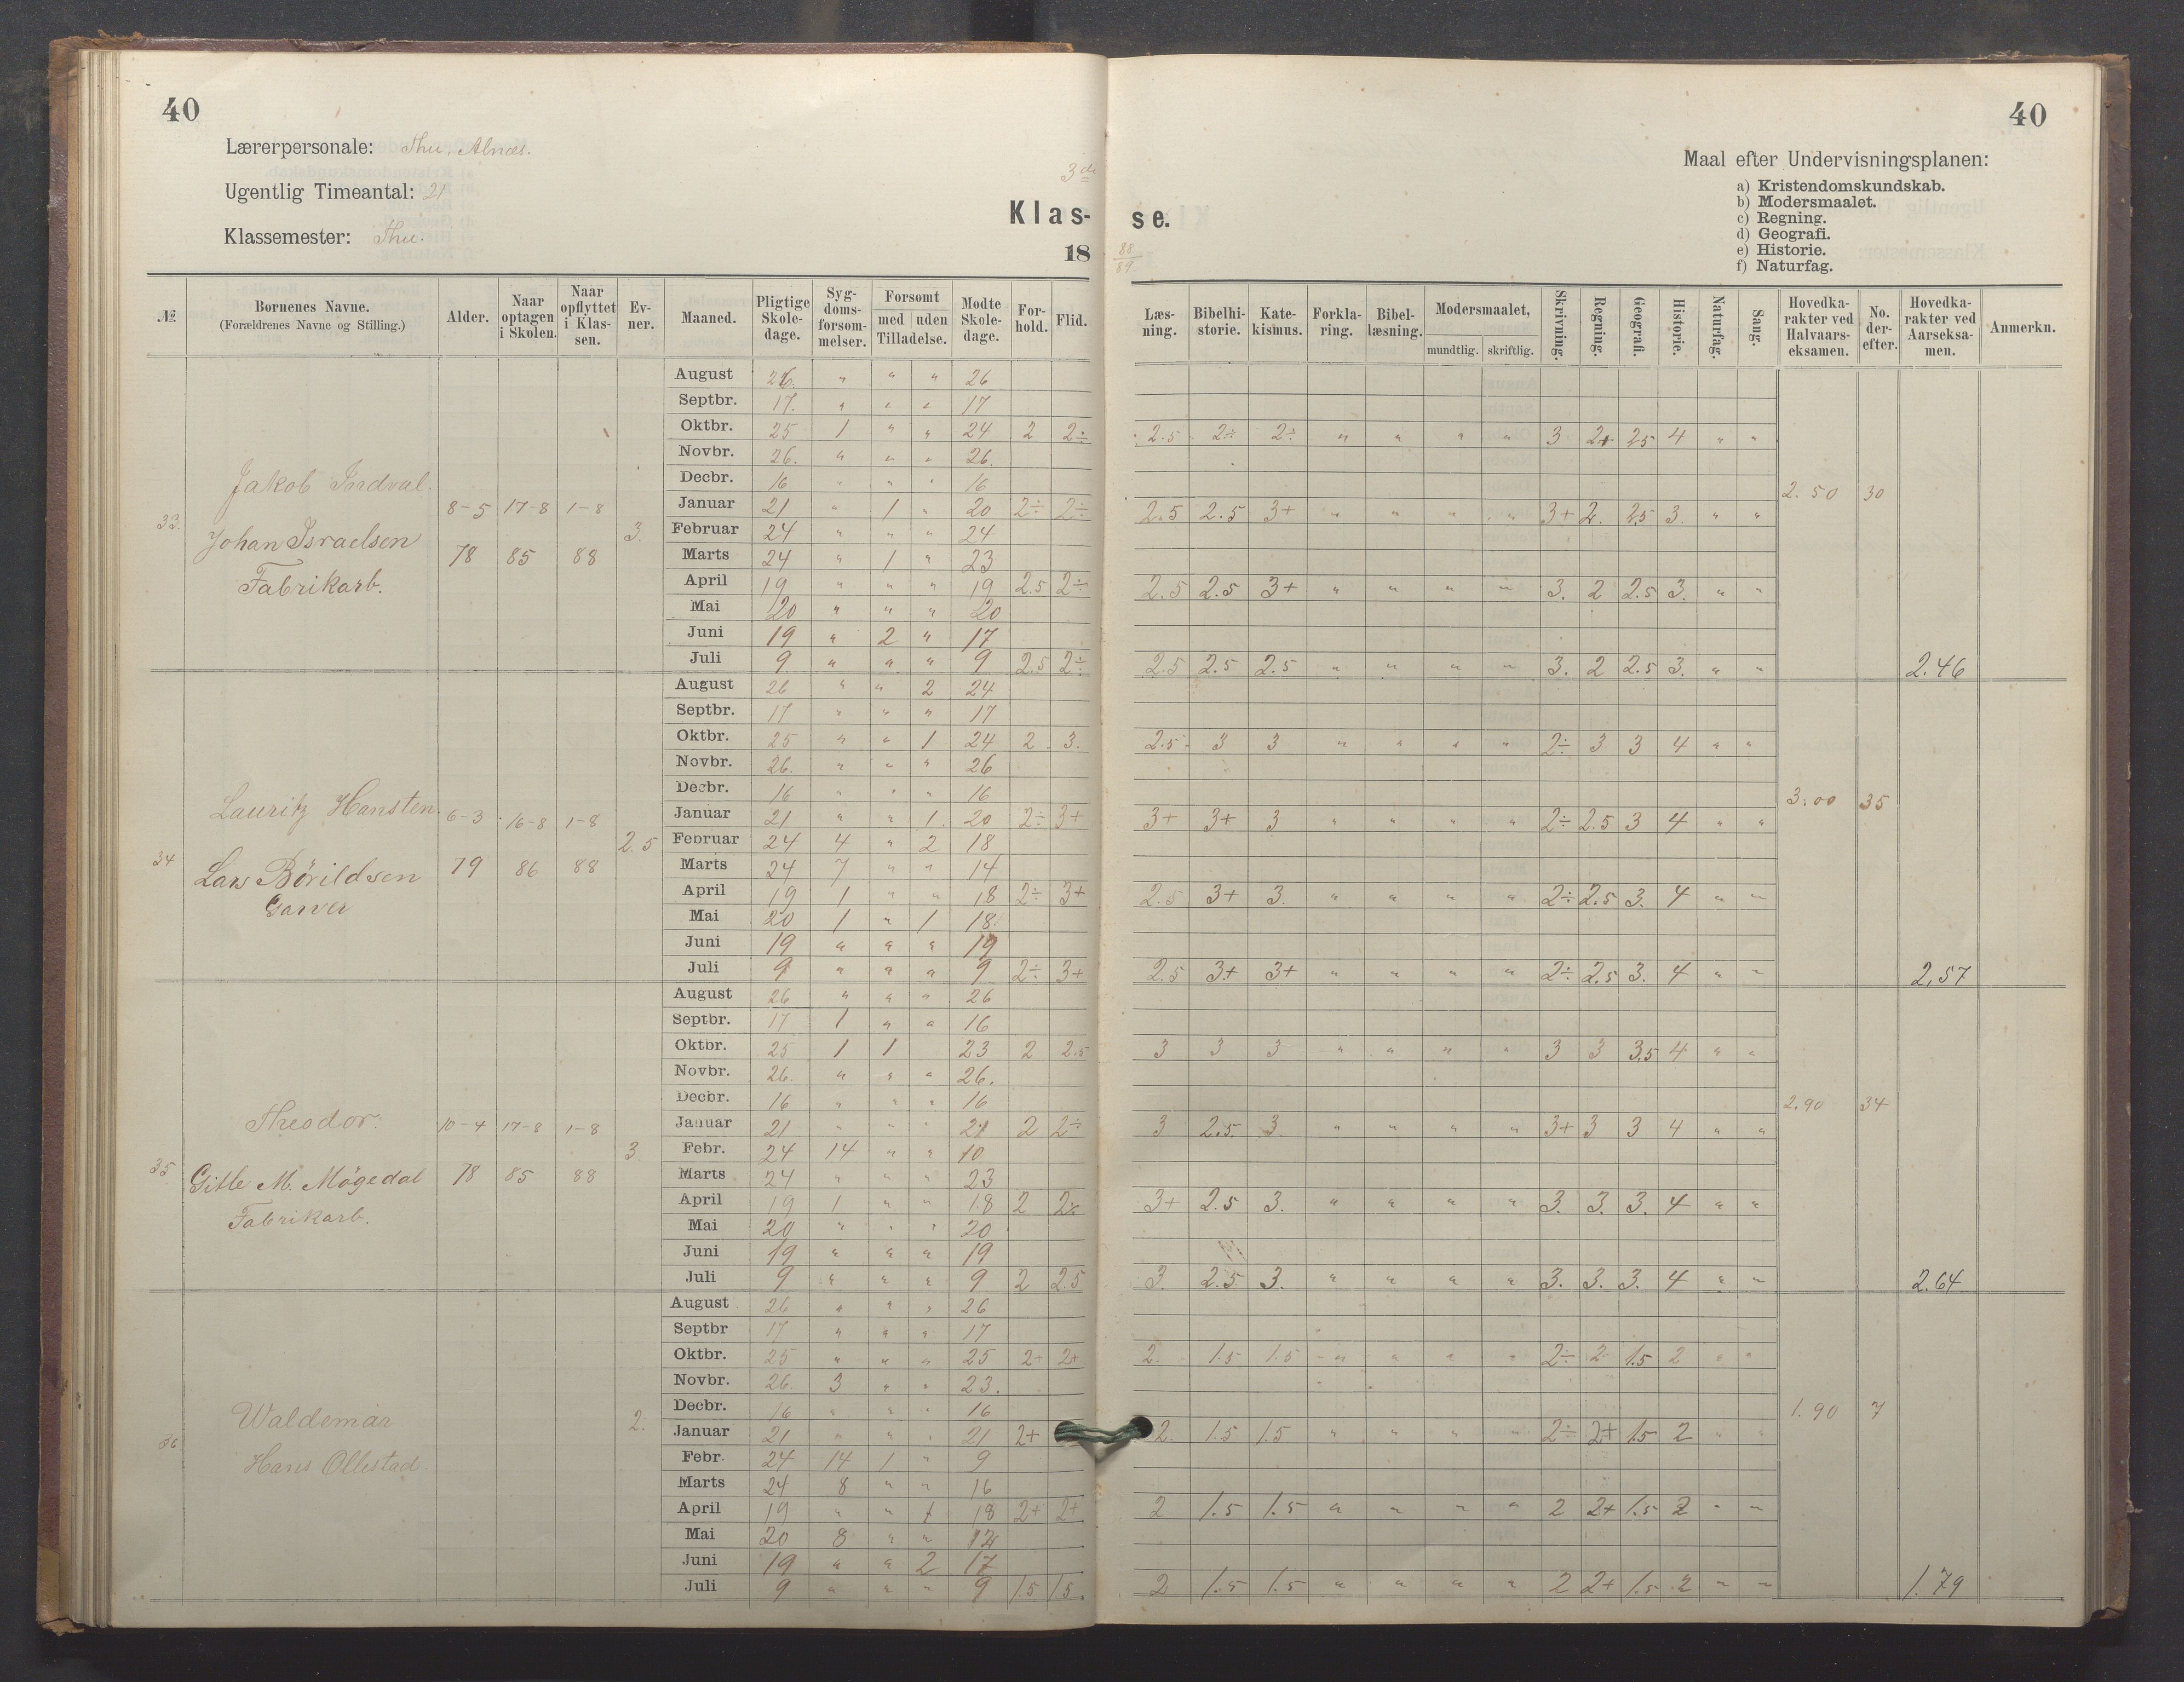 40
Lærerpersonale: Thu, Alnæs.
Ugentlig Timeantal: 21
Klassemester: Thu.
3de
Klas-
18
40
se.
88
89.
Maal efter Undervisningsplanen:
a) Kristendomskundskab.
b) Modersmaalet.
c) Regning.
d) Geografi.
e) Historie.
f) Naturfag.
№. Børnenes Navne. (Forældrenes Navne og Stilling.) Alder. Naar optagen i Skolen. Naar opflyttet i Klas-sen. Ev-ner. Maaned. Pligtige Skole-dage. Syg-doms-forsom-melser. Forsømt med uden Tilladelse. Mødte Skole-dage. For-hold. Flid.
Læs-ning. Bibelhi-storie. Kate-kismus. Forkla-ring. Bibel-læsning. Modersmaalet, mundtlig. skriftlig. Skrivning. Regning. Geografi. Historie. Naturfag. Sang. Hovedka-rakter ved Halvaars-eksamen. No. der-efter. Hovedka-rakter ved Aarseksa-men. Anmerkn.
33. Jakob Indval.
Johan Israelsen
Fabrikarb.
8-5 17-8 1-8
78 85 88
3.
August 26 " " " 26
Septbr. 17. " " " 17
Oktbr. 25 1 " " 24 2 2÷ 2.5 2÷ 2÷ " " " " 3 2+ 2.5 4 " "
Novbr. 26. " " " 26.
Decbr. 16 " " " 16
2.50 30
Januar 21 " 1 " 20 2÷ 2÷ 2.5 2.5 3+ " " " " 3+ 2. 2.5 3. " "
Februar 24 " " " 24
Marts 24 " 1 " 23
April 19 " " " 19 2.5 2÷ 2.5 2.5 3+ " " " " 3. 2 2.5 3. " "
Mai 20 " " " 20
Juni 19 " 2 " 17
Juli 9 " " " 9 2.5 2÷ 2.5 2.5 2.5 " " " " 3. 2 2.5 3. " " 2.46
34 Lauritz Hansten.
Lars Börildsen
Garver
6-3 16-8 1-8
79 86 88
2.5
August 26 " " 2 24
Septbr. 17 " " " 17
Oktbr. 25 " " 1 24 2. 3. 2.5 3 3 " " " " 2÷ 3 3 4 " "
Novbr. 26. " " " 26
Decbr. 16 " " " 16
3.00 35
Januar 21 " " 1. 20 2÷ 3+ 3+ 3+ 3 " " " " 2÷ 2.5 3 4 " "
Februar 24 4 " 2 18
Marts 24 7 " " 14
April 19 1 " " 18 2÷ 3+ 2.5 3+ 3. " " " " 2÷ 2.5 3. 4 " "
Mai 20 1 " 1 18
Juni 19 " " " 19
Juli 9 " " " 9 2÷ 3+ 2.5 3+ 3+ " " " " 2÷ 2.5 3. 4 " " 2,57
35 Theodor.
Gitle M. Mögedal
Fabrikarb.
10-4 17-8 1-8
78 85 88
3.
August 26 " " " 26
Septbr. 17 1 " " 16
Oktbr. 25 1 1 23 2 2.5 3 3 3 " " " " 3 3 3.5 4 " "
Novbr. 26. " " " 26.
Decbr. 16 " " " 16
2.90 34
Januar 21 " " " 21 2 2÷ 3 2.5. 3. " " " " 3+ 3 3 4 " "
Febr. 24 14 " " 10
Marts 24 " " " 23
April 19 1 " " 18 2 3+ 2.5 3. " " " " 3. 3. 3. 4 " "
Mai 20 " " " 20
Juni 19 " " " 19
Juli 9 " " " 9 2 2.5 3. 2.5 3. " " " " 3. 3. 3. 4 " " 2.64
36. Waldemar
Hans Ollestad
2.
August 26 " " " 26
Septbr 17 " " " 17
Oktbr. 25 " " " 25 2+ 2+ 2. 1.5 1.5 " " " " 2÷ 2 1.5 2 " "
Novbr. 26. 3 " " 23.
Decbr. 16 " " " 16
1.90 7
Januar 21 " " " 21 2+ 2. 1.5 1.5 " " " " 2÷ 2+ 1.5 2 " "
Febr. 24 14 1 " 9
Marts 24 8 " " 16
April 19 " " 1 18 2+ 2+ 2 1.5 1.5 " " " " 2 2+ 1.5 2 " "
Mai 20 8 " " 12
Juni 19 " " 2 17
Juli 9 " " " 9 1.5 1.5. 2 1.5 1.5 " " " " 2 2+ 1.5 2 " " 1.79